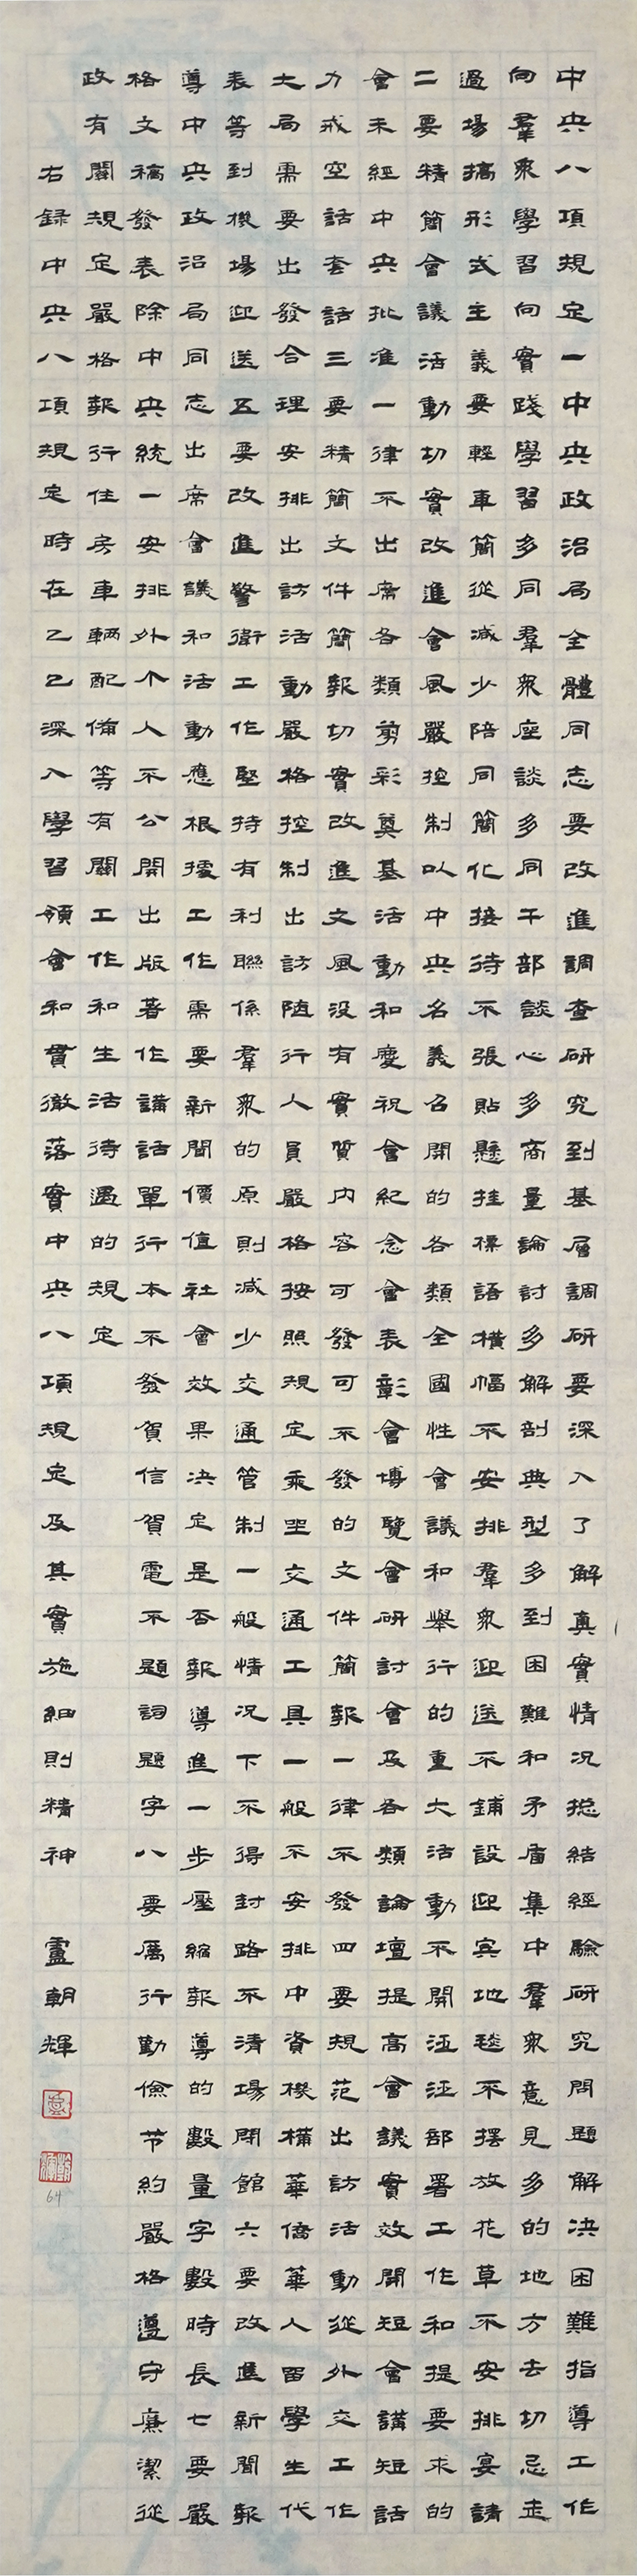 中央八項規定一中央政治局全體同志要改進調查研究到基層調研要深入了解真實情况捴結經驗研究問題解决困難指導工作
向羣眾學習向實踐學習多同羣眾座談多同干部談心多商量論討多解剖典型多到困難和矛盾集中羣眾意見多的地方去切忌走
過場搞形式主義要輕車簡從减少陪同簡化接待不張貼懸挂標語橫幅不安排羣眾迎送不鋪設迎宾地毯不擺放花草不安排宴請
二要精簡會議活動切實改進會風嚴控制以中央名義召開的各類全國性會議和舉行的重大活動不開泛泛部署工作和提要求的
會未經中央批准一律不出席各類剪彩奠基活動和慶祝會紀念會表彰會博覽會研討會及各類論壇提高會議實效開短會講短話
力戒空話套話三要精簡文件簡報切實改進文風没有實質內容可發可不發的文件簡報一律不發四要規范出訪活動從外交工作
大局需要出發合理安排出訪活動嚴格控制出訪随行人員嚴格按照規定乘坐交通工具一般不安排中資機構華僑華人留學生代
表等到機場迎送五要改進警衛工作堅持有利聯係羣眾的原則减少交通管制一般情况下不得封路不清場閉館六要改進新聞報
導中央政治局同志出席會議和活動應根據工作需要新聞價值社會效果决定是否報導進一步壓縮報導的數量字數時長七要嚴
格文稿發表除中央統一安排外个人不公開出版著作講話單行本不發賀信賀電不題詞題字八要厲行勤儉节約嚴格遵守廉潔從
政有關規定嚴格報行住房車輛配備等有關工作和生活待遇的規定
右録中央八項規定時在乙巳深入學習領會和貫徹落實中央八項規定及其實施細則精神 盧朝輝
64